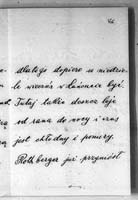 dlatego dopiero w niedzie-
le wieczór w Łańcucie być.
Tutaj takie deszcze leje
od rana do nocy i czas
jest chłodny i ponury.
Rothberger już przyniósł